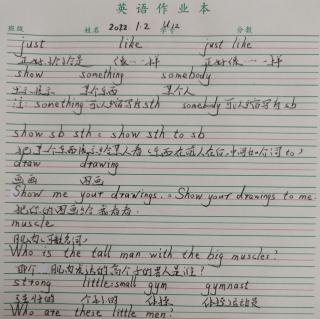 英语作业本
班级 姓名 2022 1.2 U12 学号 分数
just like just like
正好;恰恰是 像…一样 正好像…一样
show something somebody
展示 某个东西 某个人
注: something 可以缩写为sth somebody 可以缩写为sb
show sb sth = show sth to sb
把某个东西展示给某人看(东西在前人在后,中间加个词to)
draw drawing
画画 图画
Show me your drawings. = Show your drawings to me.
把你的图画给我看看.
muscle
肌肉
Who is the tall man with the big muscles?
那个…肌肉发达的高个子的男人是谁?
strong little=small gym gymnast
强壮的 个子小的 体操 体操运动员
Who are these little men?